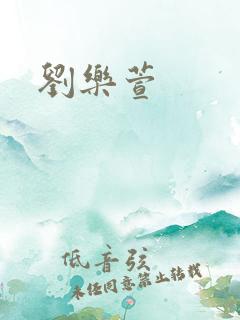 劉樂萱
低音弦
未任同意禁止转载